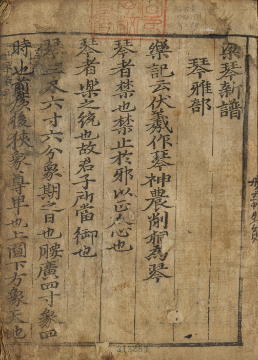 梁琴新譜
琴雅部
樂記云伏羲作琴神農削桐為琴
琴者禁也禁止於邪以正人心也
琴者樂之統也故君子所當御也
琴三尺六寸六分象期之日也腰廣四寸象四
時也前廣後狹象尊卑也上圓下方象天地